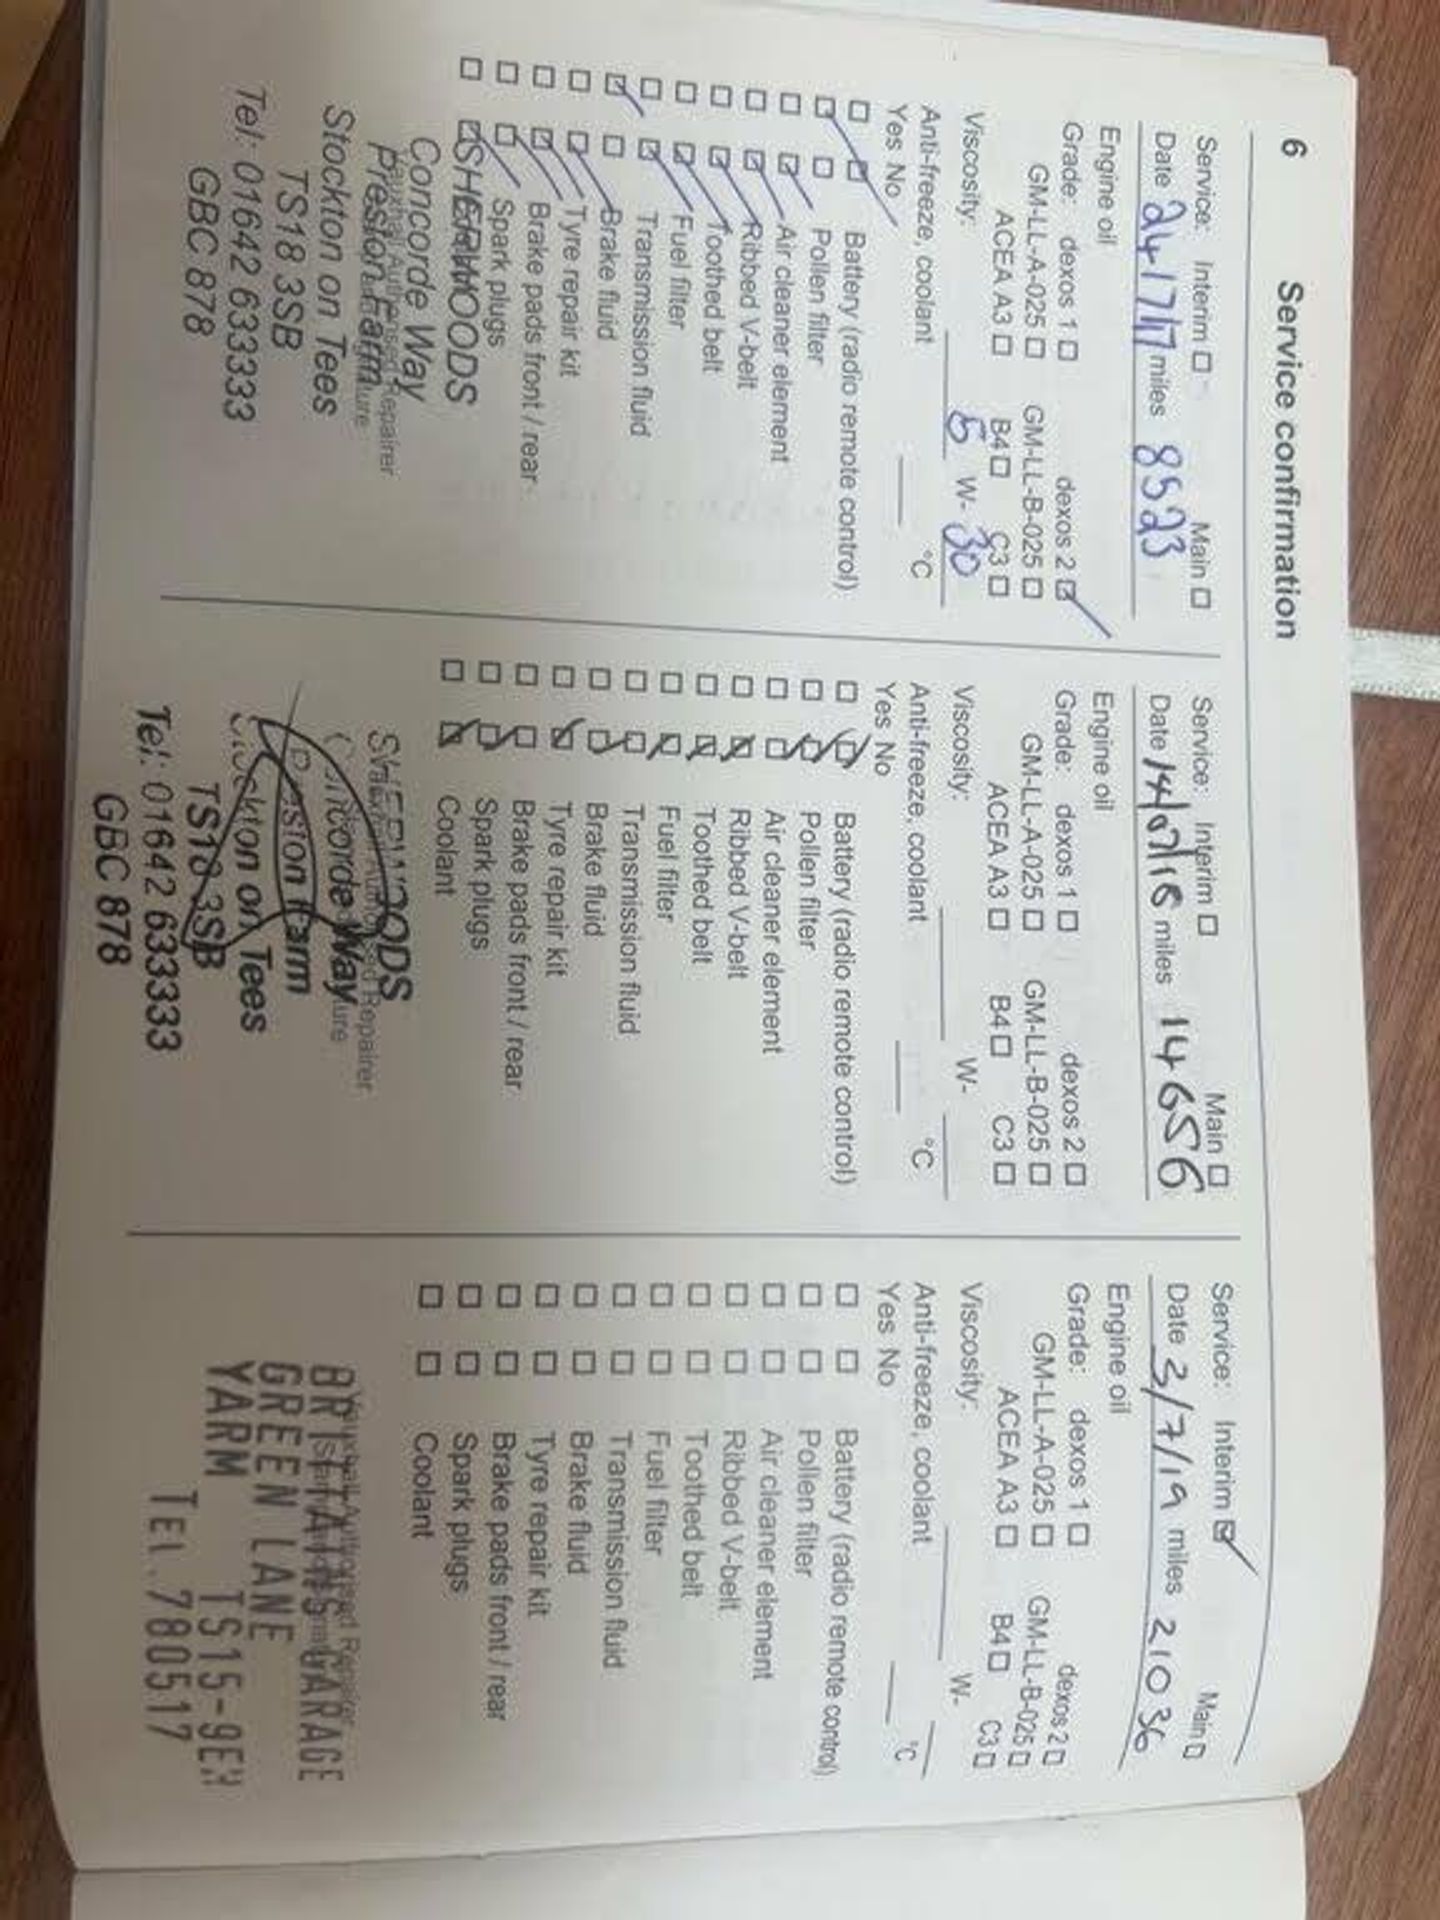 6 Service confirmation
Service: Interim ☐ Main ☐
Date 24/7/17 miles 8523
Engine oil
Grade: dexos 1 ☐ dexos 2 ☑
GM-LL-A-025 ☐ GM-LL-B-025 ☐
ACEA A3 ☐ B4 ☐ C3 ☐
Viscosity: 5 W- 30
Anti-freeze, coolant °C
Yes No
☐ ☑ Battery (radio remote control)
☑ ☐ Pollen filter
☐ ☑ Air cleaner element
☐ ☑ Ribbed V-belt
☐ ☑ Toothed belt
☐ ☑ Fuel filter
☐ ☑ Transmission fluid
☑ ☐ Brake fluid
☐ ☑ Tyre repair kit
☐ ☑ Brake pads front / rear
☐ ☑ Spark plugs
☐ ☑
SHERWOODS
Concorde Way
Preston Farm
Stockton on Tees
TS18 3SB
Tel: 01642 633333
GBC 878
Service: Interim ☐ Main ☐
Date 14/07/18 miles 14656
Engine oil
Grade: dexos 1 ☐ dexos 2 ☐
GM-LL-A-025 ☐ GM-LL-B-025 ☐
ACEA A3 ☐ B4 ☐ C3 ☐
Viscosity: W-
Anti-freeze, coolant °C
Yes No
☐ ☑ Battery (radio remote control)
☐ ☑ Pollen filter
☐ ☑ Air cleaner element
☐ ☑ Ribbed V-belt
☐ ☑ Toothed belt
☐ ☑ Fuel filter
☐ ☑ Transmission fluid
☐ ☑ Brake fluid
☐ ☑ Tyre repair kit
☐ ☑ Brake pads front / rear
☐ ☑ Spark plugs
☐ ☑ Coolant
SHERWOODS
Concorde Way
Preston Farm
Stockton on Tees
TS18 3SB
Tel: 01642 633333
GBC 878
Service: Interim ☑ Main ☐
Date 3/7/19 miles 21036
Engine oil
Grade: dexos 1 ☐ dexos 2 ☐
GM-LL-A-025 ☐ GM-LL-B-025 ☐
ACEA A3 ☐ B4 ☐ C3 ☐
Viscosity: W-
Anti-freeze, coolant °C
Yes No
☐ ☐ Battery (radio remote control)
☐ ☐ Pollen filter
☐ ☐ Air cleaner element
☐ ☐ Ribbed V-belt
☐ ☐ Toothed belt
☐ ☐ Fuel filter
☐ ☐ Transmission fluid
☐ ☐ Brake fluid
☐ ☐ Tyre repair kit
☐ ☐ Brake pads front / rear
☐ ☐ Spark plugs
☐ ☐ Coolant
Vauxhall Authorised Repairer
GARAGE
GREEN LANE
YARM TS15-9EH
TEL. 780517